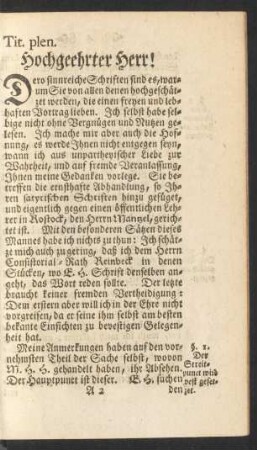 Tit. plen.
Hochgeehrter Herr!
Dero sinnreiche Schriften sind es, war-
um Sie von allen denen hochgeschät-
zet werden, die einen freyen und leb-
haften Vortrag lieben. Ich selbst habe sel-
bige nicht ohne Vergnügen und Nutzen ge-
lesen. Ich mache mir aber auch die Hof-
nung, es werde Ihnen nicht entgegen seyn,
wann ich aus unpartheyischer Liebe zur
Wahrheit, und auf fremde Veranlassung,
Ihnen meine Gedanken vorlege. Sie be-
treffen die ernsthafte Abhandlung, so Ih-
ren satyrischen Schriften hinzu gefüget,
und eigentlich gegen einen öffentlichen Leh-
rer in Rostock, den Herrn Mantzel, gerich-
tet ist. Mit den besonderen Sätzen dieses
Mannes habe ich nichts zu thun: Ich schät-
ze mich auch zu gering, daß ich dem Herrn
Consistorial-Rath Reinbeck in denen
Stücken, wo E. H. Schrift denselben an-
geht, das Wort reden sollte. Der letzte
braucht keiner fremden Vertheidigung:
Dem erstern aber will ich in der Ehre nicht
vorgreifen, da er seine ihm selbst am besten
bekante Einsichten zu bevestigen Gelegen-
heit hat.
Meine Anmerkungen haben auf den vor-
nehmsten Theil der Sache selbst, wovon
M. H. H. gehandelt haben, ihr Absehen.
Der Hauptpunct ist dieser. E. H. suchen
A 2 den
§. 1.
Der
Streit-
punct wird
vest geset-
zet.